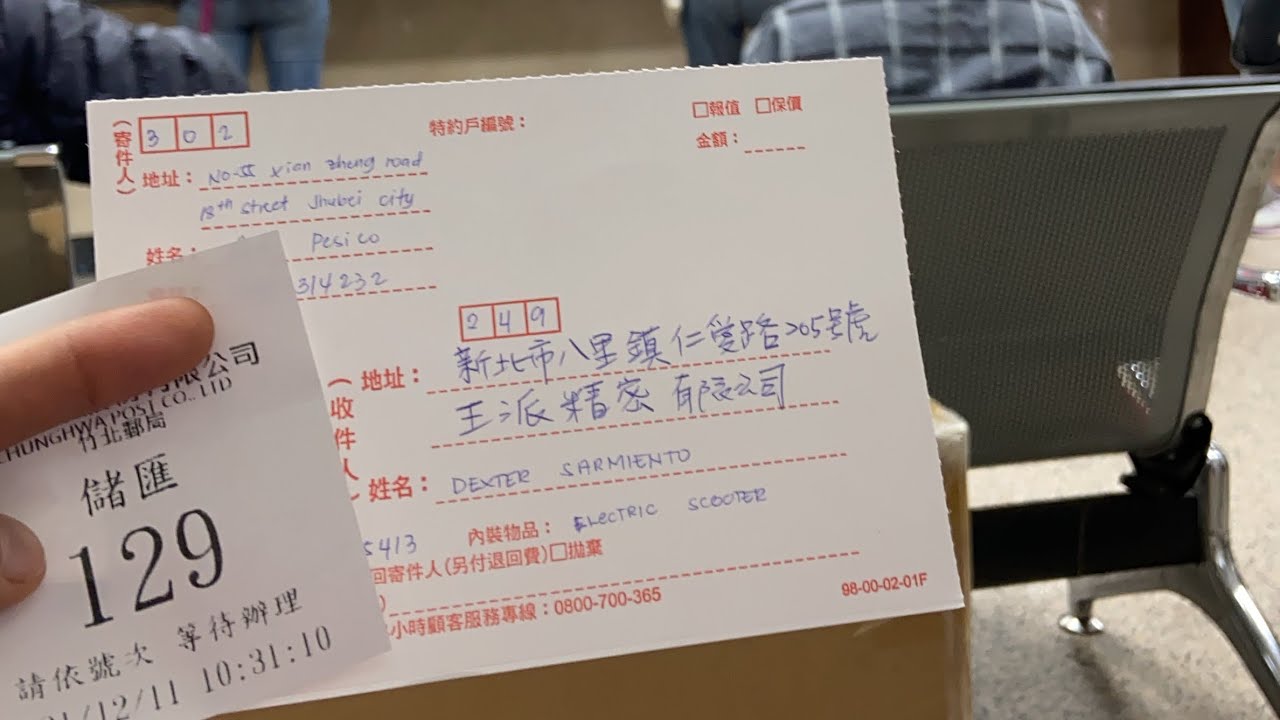 (寄件人)
302
特約戶編號：
□報值 □保價
金額：
地址： NO-55 Xian Zheng road
18th street Jhubei city
姓名： Pesico
314232
249
(收件人)
地址： 新北市八里鎮仁愛路205號
王派精密有限公司
姓名： DEXTER SARMIENTO
5413
內裝物品： ELECTRIC SCOOTER
回寄件人(另付退回費)□拋棄
小時顧客服務專線：0800-700-365
98-00-02-01F
限公司
CHUNGHWA POST CO., LTD
竹北郵局
儲匯
129
請依號次 等待辦理
/12/11 10:31:10